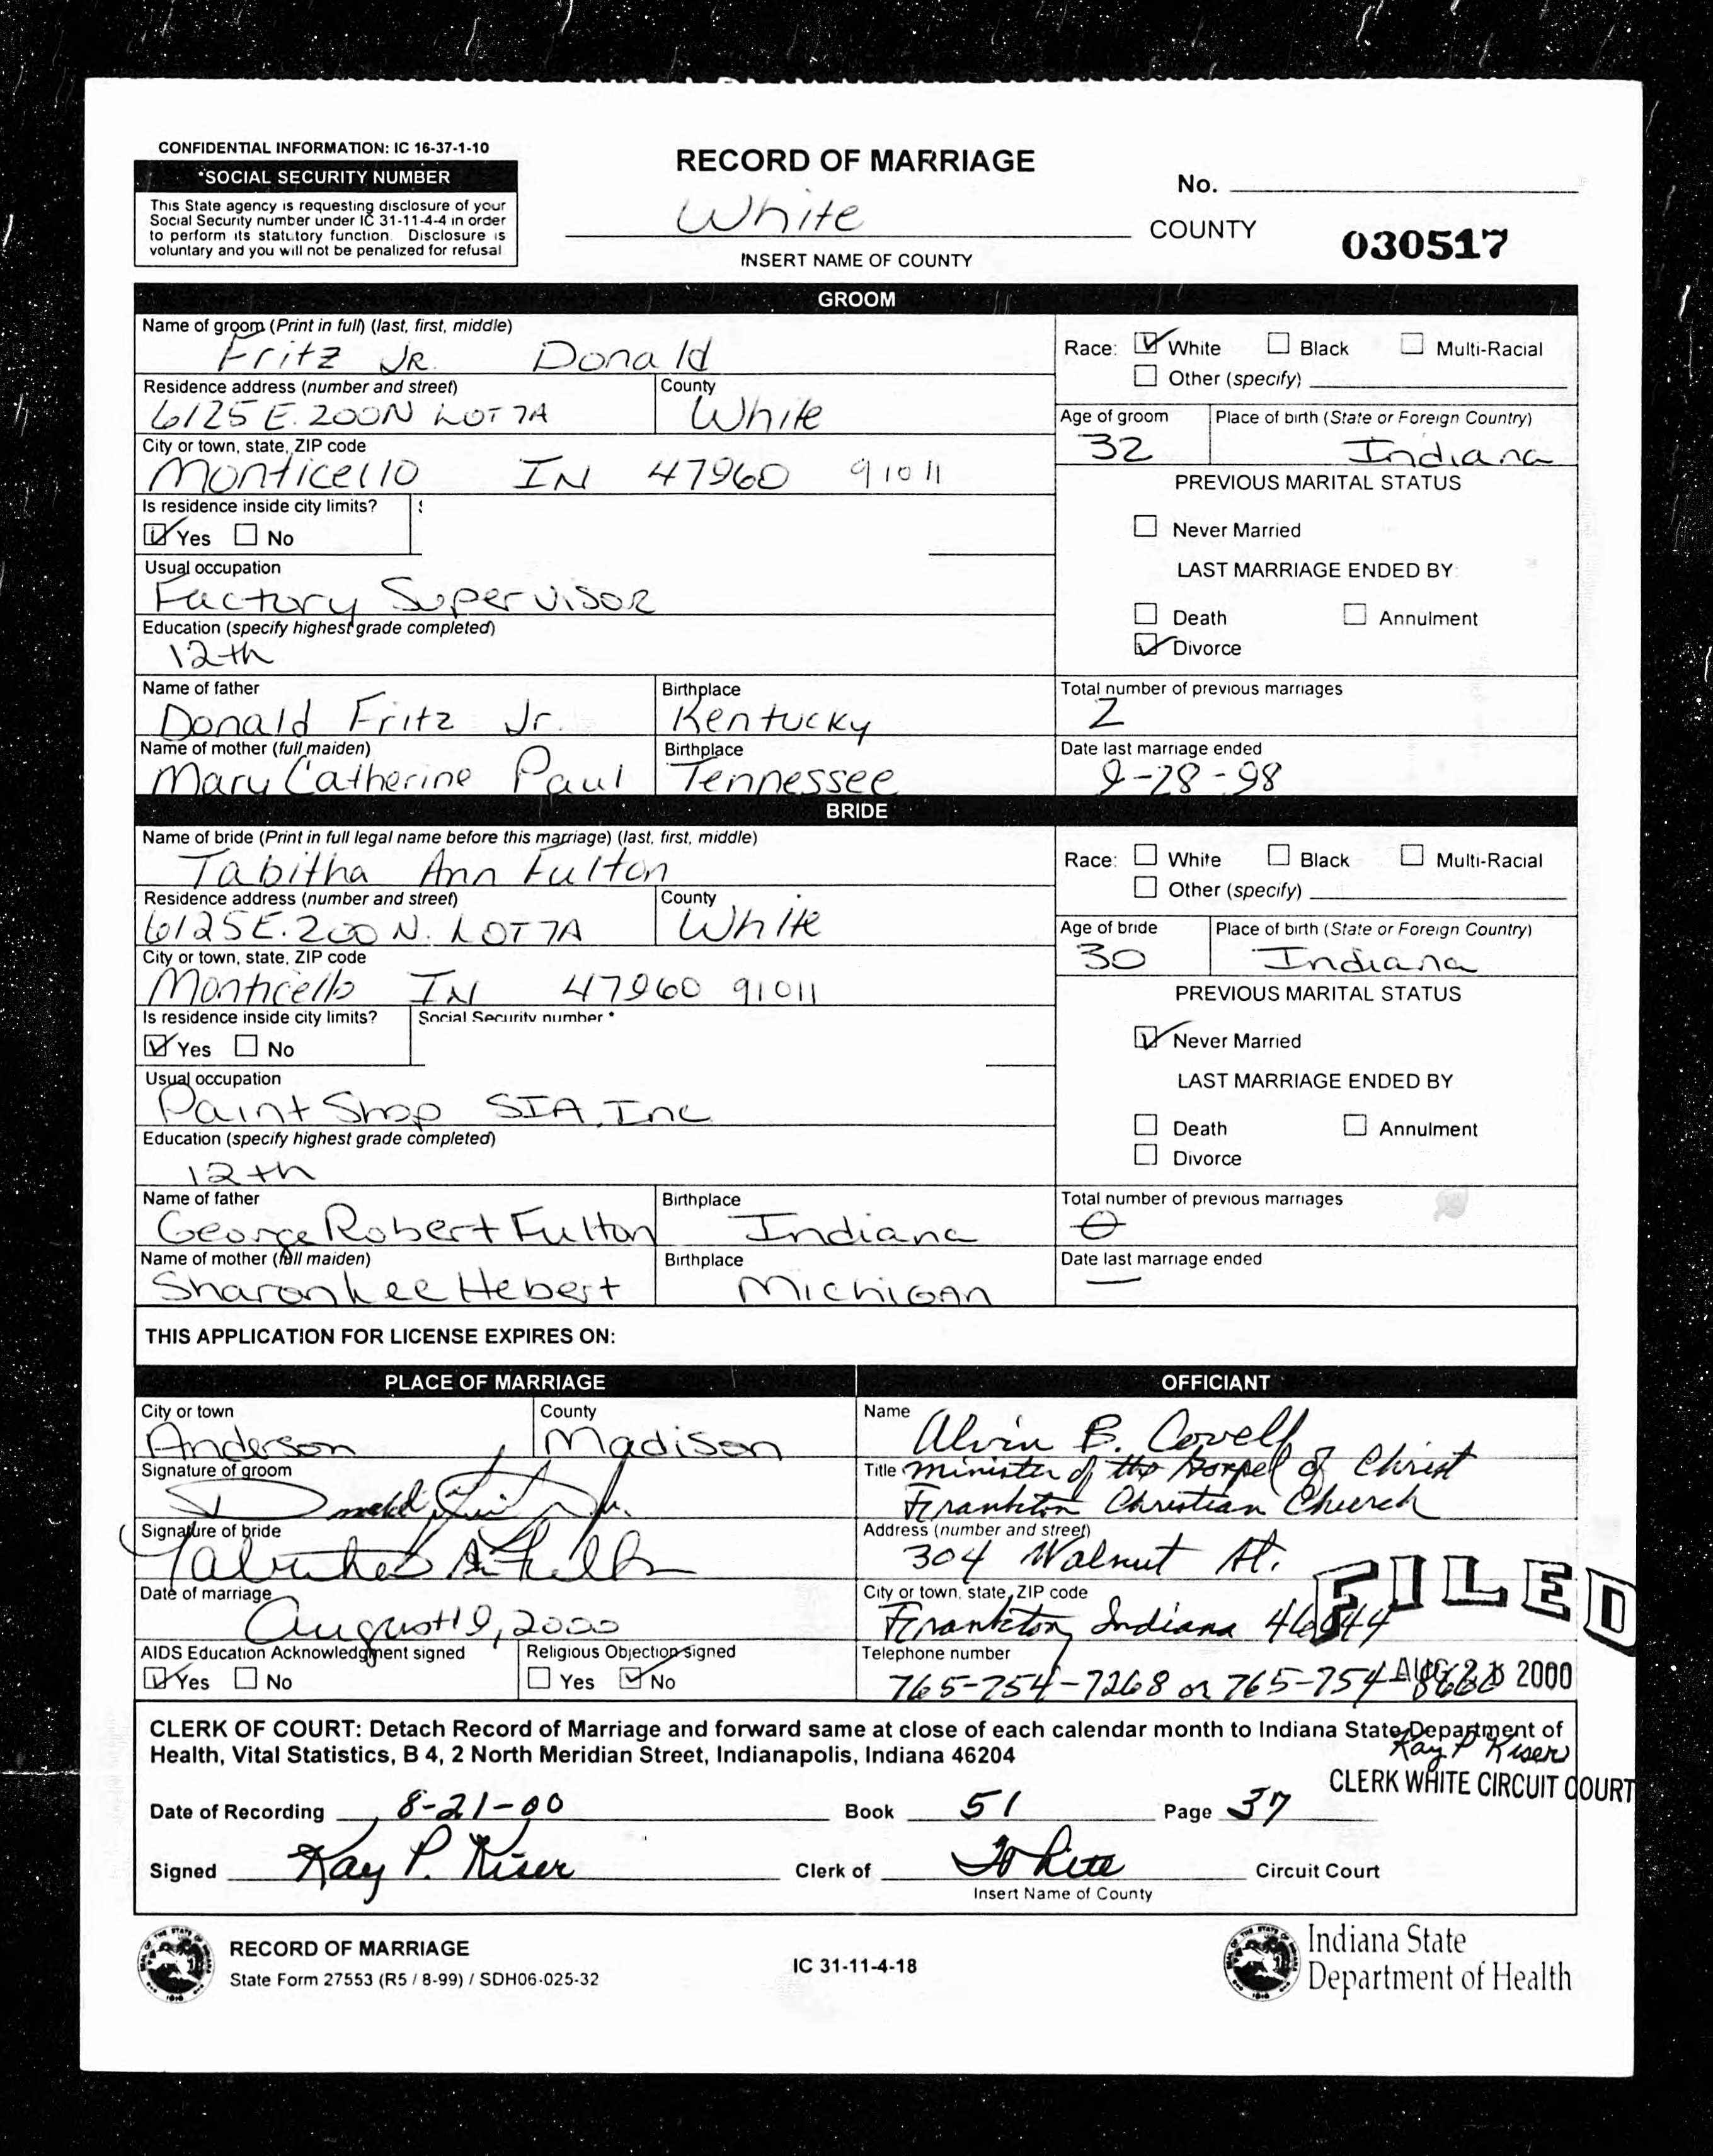 CONFIDENTIAL INFORMATION: IC 16-37-1-10
*SOCIAL SECURITY NUMBER
This State agency is requesting disclosure of your
Social Security number under IC 31-11-4-4 in order
to perform its statutory function. Disclosure is
voluntary and you will not be penalized for refusal
RECORD OF MARRIAGE
White
INSERT NAME OF COUNTY
No.
COUNTY
030517
GROOM
Name of groom (Print in full) (last, first, middle)
Fritz JR. Donald
Race: White Black Multi-Racial
Other (specify)
Residence address (number and street) County
6125 E. 200N LOT 7A White
Age of groom Place of birth (State or Foreign Country)
32 Indiana
City or town, state, ZIP code
Monticello IN 47960 91011
PREVIOUS MARITAL STATUS
Is residence inside city limits?
Yes No
Never Married
Usual occupation
Factory Supervisor
LAST MARRIAGE ENDED BY:
Death Annulment
Education (specify highest grade completed)
12th
Divorce
Name of father Birthplace Total number of previous marriages
Donald Fritz Jr. Kentucky 2
Name of mother (full maiden) Birthplace Date last marriage ended
Mary Catherine Paul Tennessee 9-28-98
BRIDE
Name of bride (Print in full legal name before this marriage) (last, first, middle)
Tabitha Ann Fulton
Race: White Black Multi-Racial
Other (specify)
Residence address (number and street) County
6125 E. 200 N. LOT 7A White
Age of bride Place of birth (State or Foreign Country)
30 Indiana
City or town, state, ZIP code
Monticello IN 47960 91011
PREVIOUS MARITAL STATUS
Is residence inside city limits? Social Security number *
Yes No
Never Married
Usual occupation
Paint Shop SIA, Inc
LAST MARRIAGE ENDED BY
Death Annulment
Education (specify highest grade completed)
12th
Divorce
Name of father Birthplace Total number of previous marriages
George Robert Fulton Indiana 0
Name of mother (full maiden) Birthplace Date last marriage ended
Sharon Lee Hebert Michigan —
THIS APPLICATION FOR LICENSE EXPIRES ON:
PLACE OF MARRIAGE
City or town County
Anderson Madison
Signature of groom
Donald Fritz Jr.
Signature of bride
Tabitha A. Fulton
Date of marriage
August 19, 2000
AIDS Education Acknowledgment signed Religious Objection signed
Yes No Yes No
OFFICIANT
Name Alvin B. Covell
Title minister of the Gospel of Christ
Frankton Christian Church
Address (number and street)
304 Walnut St.
City or town, state, ZIP code
Frankton, Indiana 46044
FILED
Telephone number
765-754-7268 or 765-754-
AUG 2 2000
CLERK OF COURT: Detach Record of Marriage and forward same at close of each calendar month to Indiana State Department of
Health, Vital Statistics, B 4, 2 North Meridian Street, Indianapolis, Indiana 46204
Kay P Kiser
CLERK WHITE CIRCUIT COURT
Date of Recording 8-21-00 Book 51 Page 37
Signed Kay P. Kiser Clerk of White Circuit Court
Insert Name of County
RECORD OF MARRIAGE
State Form 27553 (R5 / 8-99) / SDH06-025-32
IC 31-11-4-18
Indiana State
Department of Health